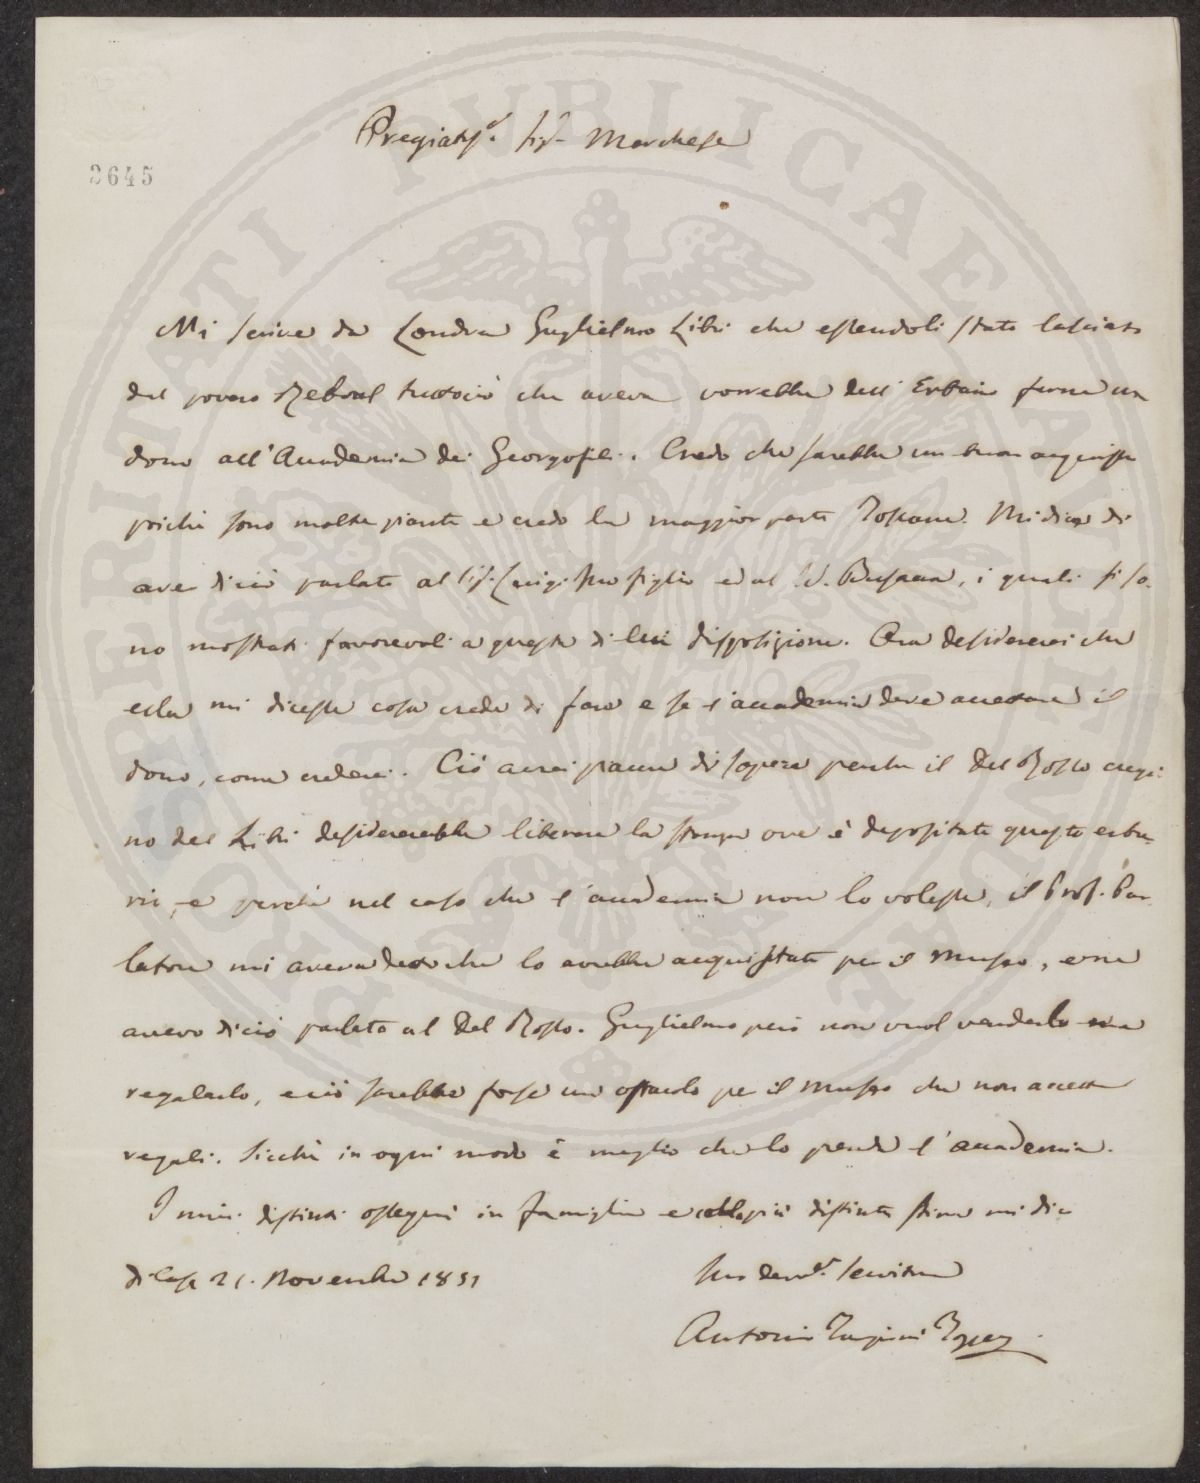 3645
Pregiatis.o Sig.r Marchese
Mi scrive da Londra Guglielmo Libri che essendoli stato lasciato
dal povero Reboul tuttociò che aveva vorrebbe dell'Erbario farne un
dono all'Accademia dei Georgofili. Credo che sarebbe un buon acquisto
poichè sono molte piante e credo la maggior parte Toscane. Mi dice di
aver di ciò parlato al Sig. Luigi suo figlio ed al M. Busacca, i quali si so-
no mostrati favorevoli a questa di lui disposizione. Ora desidererei che
ella mi dicesse cosa crede di fare e se l'accademia deve accettare il
dono, come crederei. Ciò avrei piacere di sapere perchè il Del Rosso cugi-
no del Libri desidererebbe liberare la stanza ove è depositato questo erba-
rio, e perchè nel caso che l'accademia non lo volesse, il Prof. Par-
latore mi aveva detto che lo avrebbe acquistato per il Museo, e ne
avevo di ciò parlato al Del Rosso. Guglielmo però non vuol venderlo ma
regalarlo, e ciò sarebbe forse un ostacolo per il Museo che non accetta
regali. Sicchè in ogni modo è meglio che lo prenda l'accademia.
I miei distinti ossequi in famiglia e colla più distinta stima mi dico
di Casa 21. Novembre 1851
Suo dev.o Servitore
Antonio Targioni Tozzetti
PROSPERITATI PUBLICAE AUGENDAE